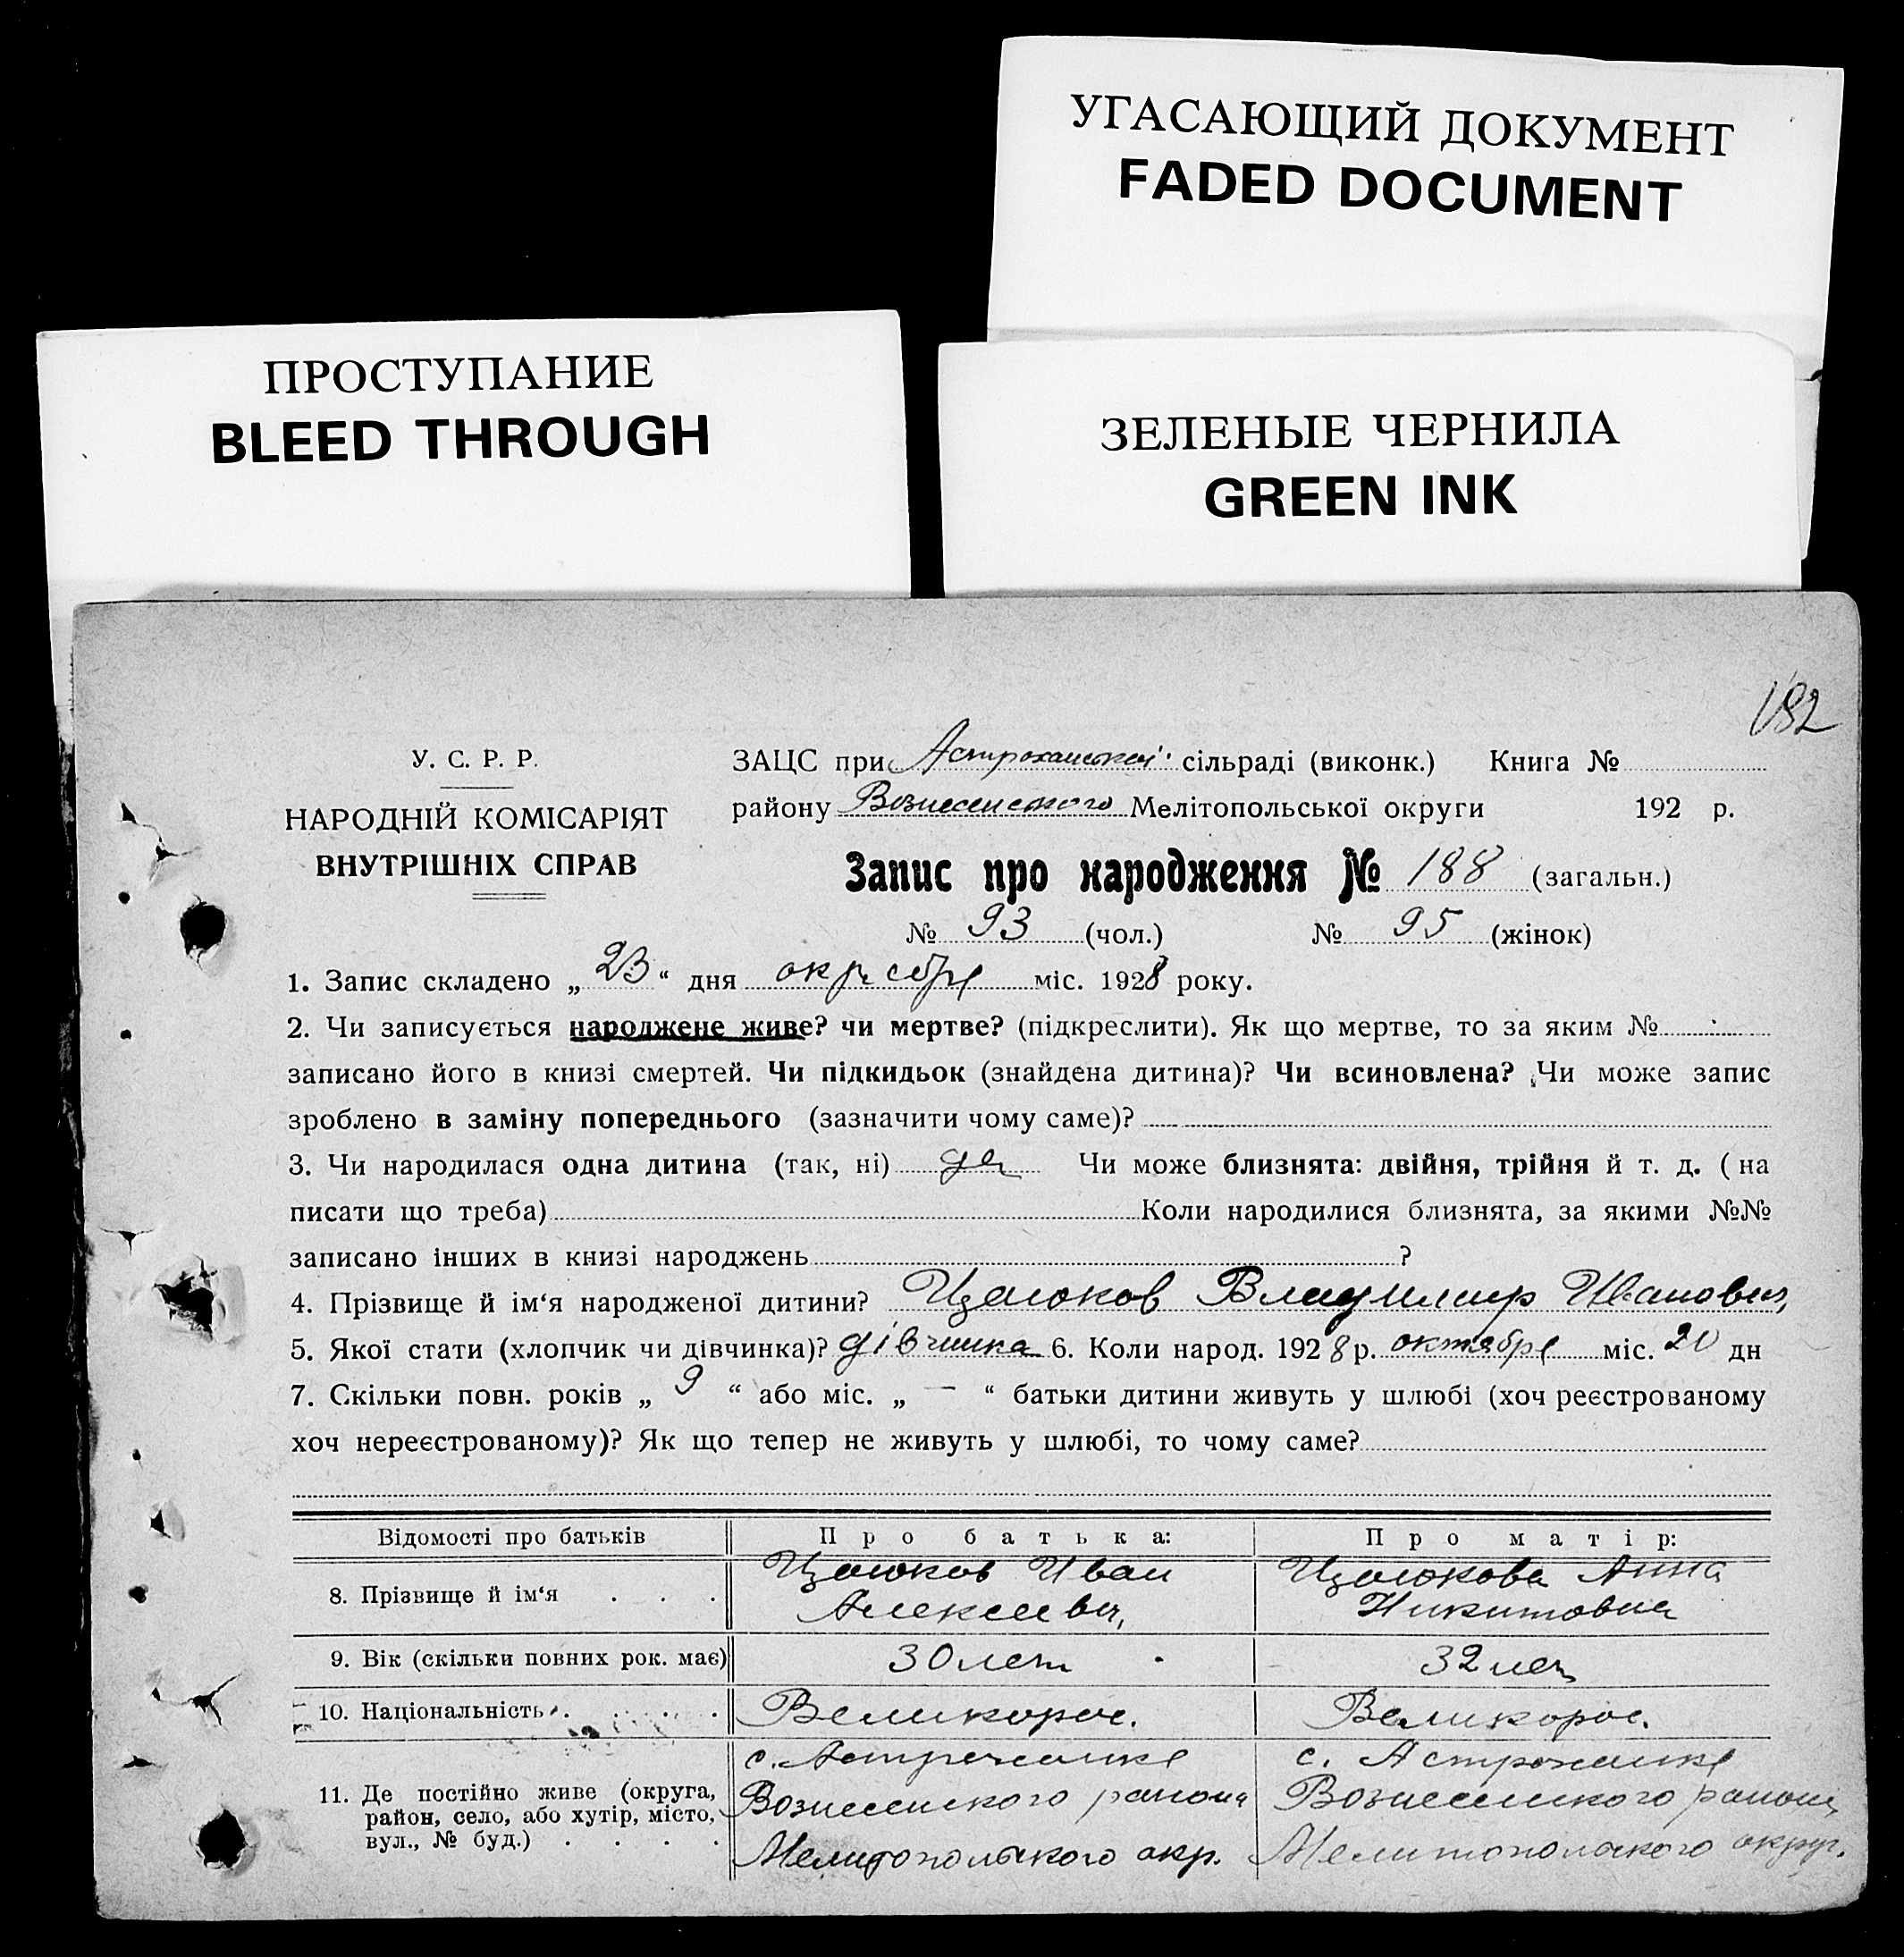 УГАСАЮЩИЙ ДОКУМЕНТ
FADED DOCUMENT
ПРОСТУПАНИЕ
BLEED THROUGH
ЗЕЛЕНЫЕ ЧЕРНИЛА
GREEN INK
182
У. С. Р. Р.
НАРОДНІЙ КОМІСАРІЯТ
ВНУТРІШНІХ СПРАВ
ЗАЦС при Астроханській сільраді (виконк.) Книга №
району Вознесенского Мелітопольської округи 192 р.
Запис про народження № 188 (загальн.)
№ 93 (чол.) № 95 (жінок)
1. Запис складено „ 23 “ дня октября міс. 1928 року.
2. Чи записується народжене живе? чи мертве? (підкреслити). Як що мертве, то за яким №
записано його в книзі смертей. Чи підкидьок (знайдена дитина)? Чи всиновлена? Чи може запис
зроблено в заміну попереднього (зазначити чому саме)?
3. Чи народилася одна дитина (так, ні) да Чи може близнята: двійня, трійня й т. д. (на
писати що треба) Коли народилися близнята, за якими №№
записано інших в книзі народжень ?
4. Прізвище й ім‘я народженої дитини? Владимир Иванович
5. Якої стати (хлопчик чи дівчинка)? дівчинка 6. Коли народ. 1928 р. октября міс. 20 дн
7. Скільки повн. років „ 9 “ або міс. „ — “ батьки дитини живуть у шлюбі (хоч реєстрованому
хоч нереєстрованому)? Як що тепер не живуть у шлюбі, то чому саме?
Відомості про батьків Про батька: Про матір:
8. Прізвище й ім‘я . . . Иван Алексеевич Анна Никитовна
9. Вік (скільки повних рок. має) 30 лет 32 лет
10. Національність . . . . Великорос. Великорос.
11. Де постійно живе (округа,
район, село, або хутір, місто,
вул., № буд.) . . . .
с. Астроханке
Вознесенского района
Мелитопольского окр.
с. Астроханке
Вознесенского района
Мелитопольского округ.